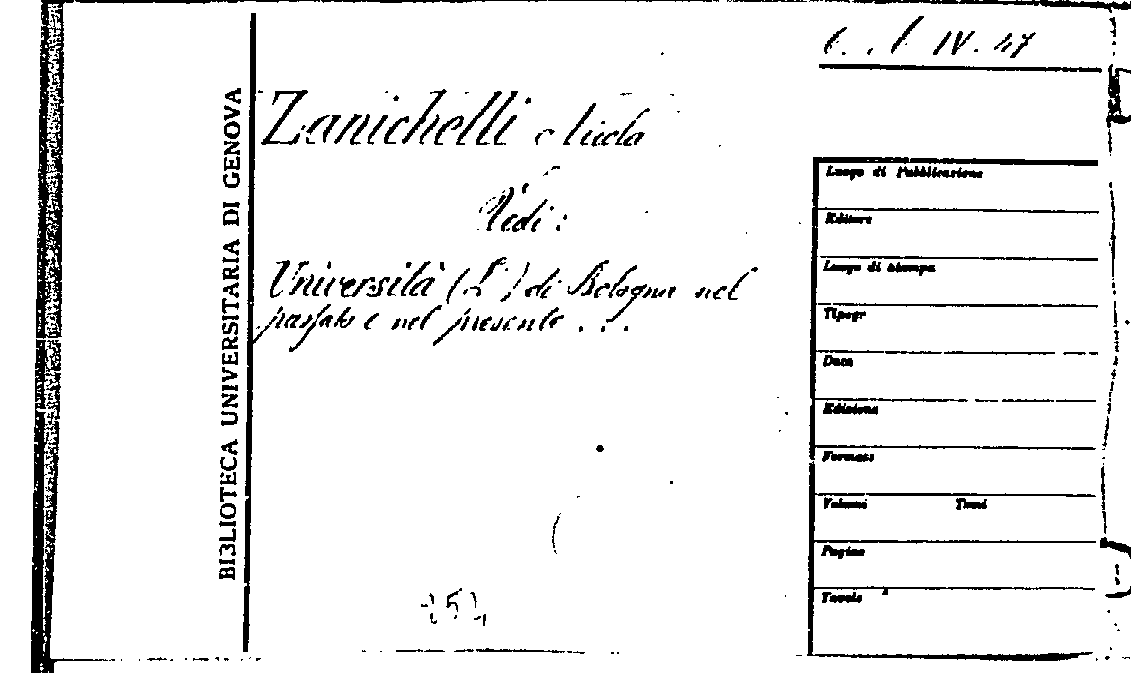 IV. 47
BIBLIOTECA UNIVERSITARIA DI GENOVA
Zanichelli
Vedi:
Università (L') di Bologna nel
passato e nel presente...
Luogo di Pubblicazione
Editore
Luogo di stampa
Tipogr
Data
Edizione
Formato
Volumi Tomi
Pagine
Tavole